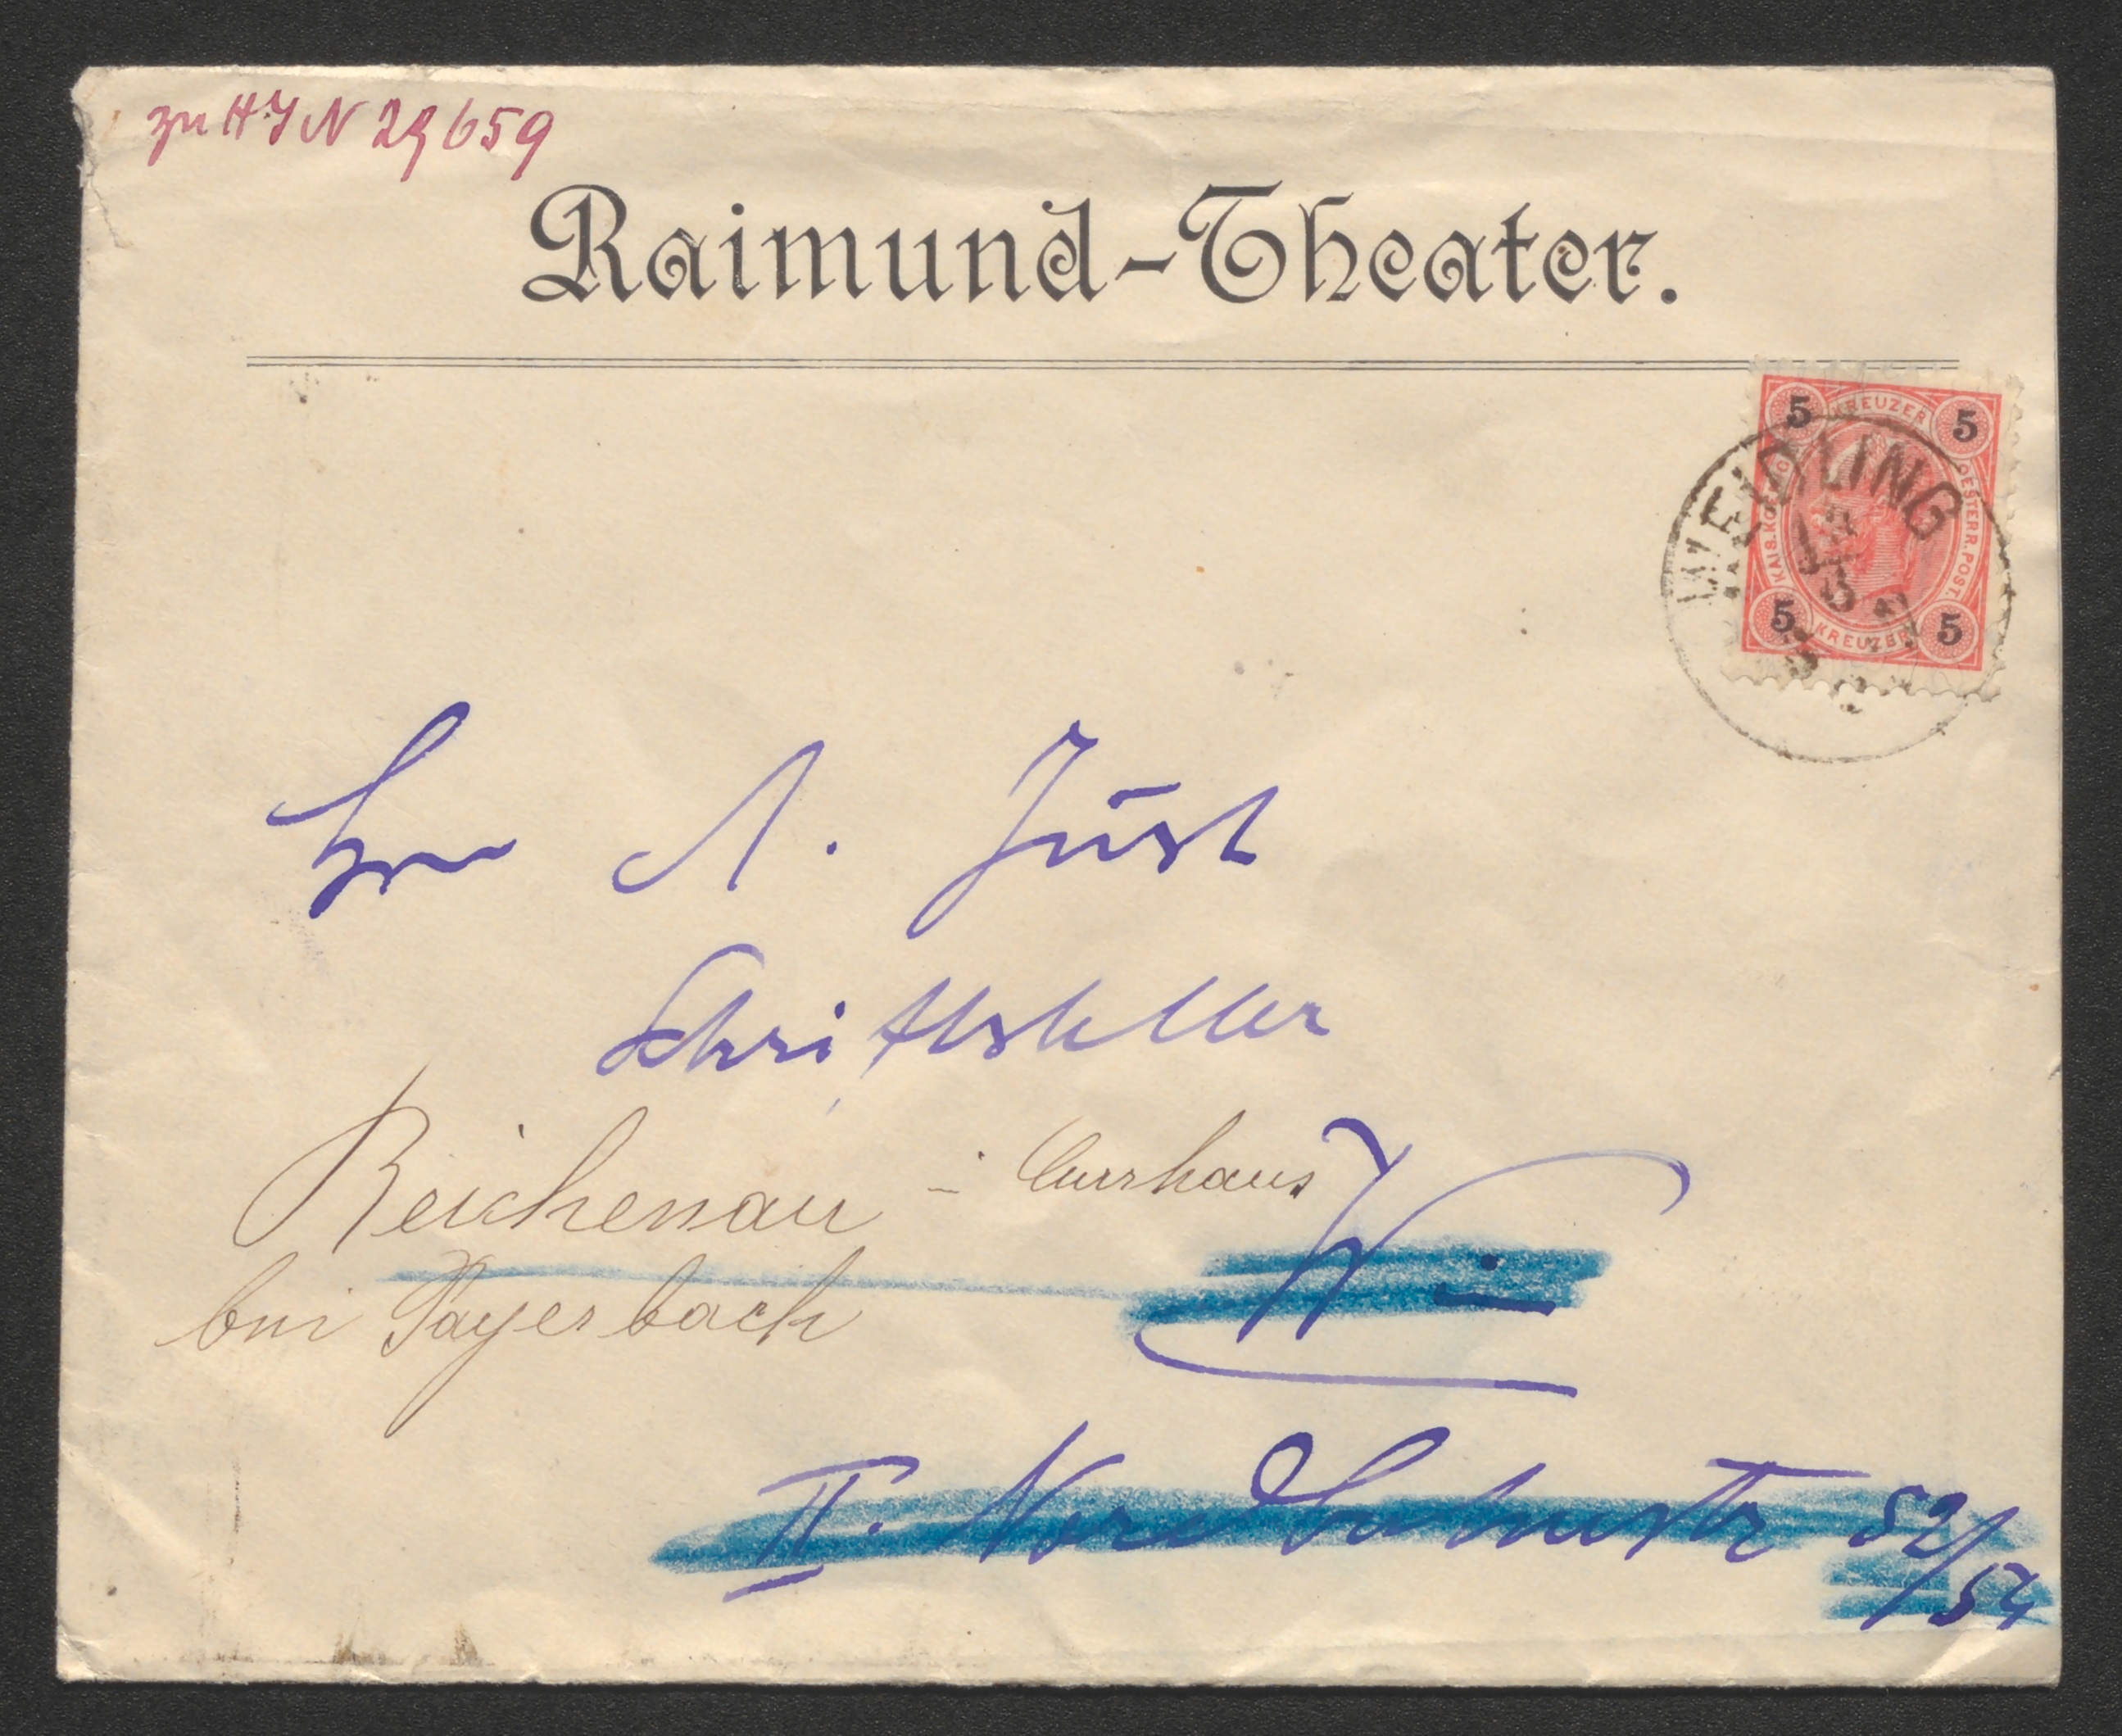 zu H.I.N 29659
Raimund-Theater.
5 KREUZER 5
KAIS. KÖ OESTERR. POST.
5 KREUZER 5
WEIDLING
Hrn A. Just
Schriftsteller
Reichenau - Currhaus
bei Payerbach
Wien
II. Nordbahnstr 52/54